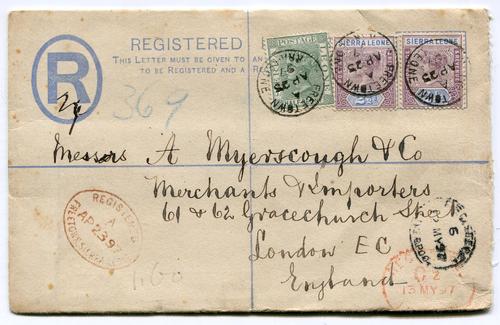 REGISTERED
THIS LETTER MUST BE GIVEN TO AN
TO BE REGISTERED AND A RE
R
POSTAGE
SIERRA LEONE
SIERRA LEONE
FREETOWN
A
AP 23
97
FREETOWN
A
AP 23
FREETOWN
A
AP 23
369
Messrs A Myerscough & Co
Merchants & Importers
61 & 62 Gracechurch Stre
London EC
England
REGISTERED
A
AP 23 9
FREETOWN SIERRA
13 MY 97